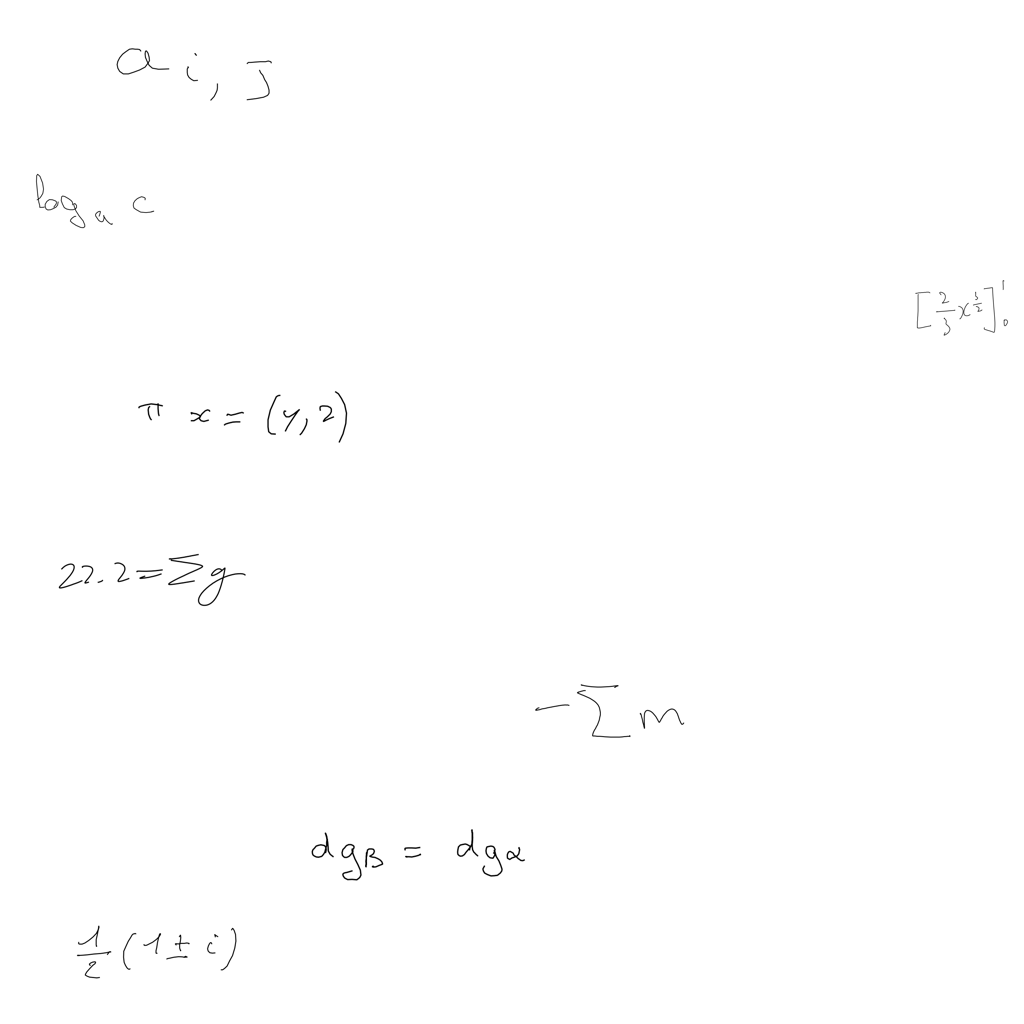 a i, J
log_a c
[2/3 x^{3/2}]_0^1
π x = (y, z)
22.2 = Σ g
- Σ m
d g_β = d g_α
1/2 (1 ± i)